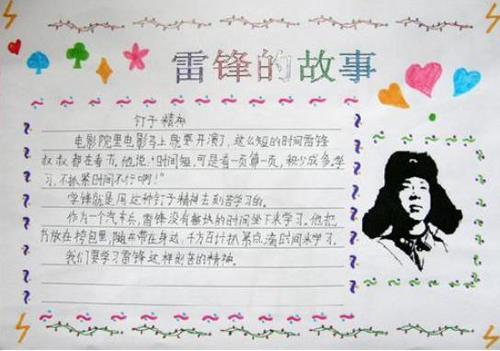 雷锋的故事
钉子精神
电影院里电影马上就要开演了,这么短的时间雷锋
叔叔都在看书。他说:"时间短,可是看一页算一页,积少成多。学
习,不抓紧时间不行啊!"
雷锋就是用这种钉子精神去刻苦学习的。
作为一个汽车兵,雷锋没有整块的时间坐下来学习。他把
书放在挎包里,随身带在身边,千方百计抓紧点滴时间来学习。
我们要学习雷锋这样刻苦的精神。